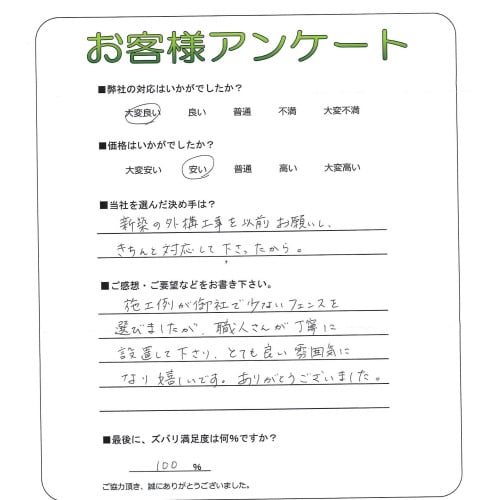 お客様アンケート
■弊社の対応はいかがでしたか？
大変良い 良い 普通 不満 大変不満
■価格はいかがでしたか？
大変安い 安い 普通 高い 大変高い
■当社を選んだ決め手は？
新築の外構工事を以前お願いし、
きちんと対応して下さったから。
■ご感想・ご要望などをお書き下さい。
施工例が御社で少ないフェンスを
選びましたが、職人さんが丁寧に
設置して下さり、とても良い雰囲気に
なり嬉しいです。ありがとうございました。
■最後に、ズバリ満足度は何%ですか？
100 %
ご協力頂き、誠にありがとうございました。